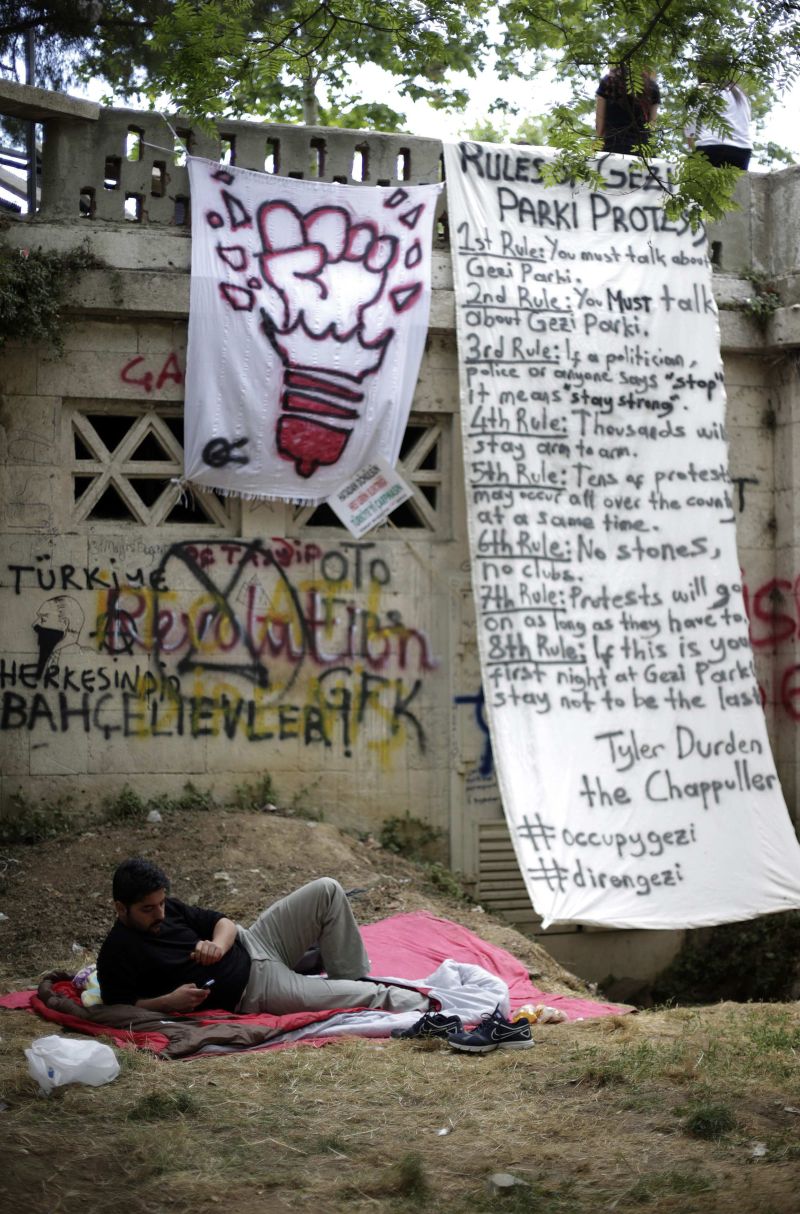 RULES OF GEZI
PARKI PROTESTS
1st Rule: You must talk about
Gezi Parki.
2nd Rule: You MUST talk
about Gezi Parki.
3rd Rule: If a politician,
police or anyone says "stop"
it means "stay strong".
4th Rule: Thousands will
stay arm to arm.
5th Rule: Tens of protests
may occur all over the county
at a same time.
6th Rule: No stones,
no clubs.
7th Rule: Protests will go
on as long as they have to.
8th Rule: If this is your
first night at Gezi Parki
stay not to be the last
Tyler Durden
the Chappuller
#occupygezi
#direngezi
GA
TÜRKİYE
HERKESİNDİR
BAHÇELİEVLER!
Revolution
OTO
GFK